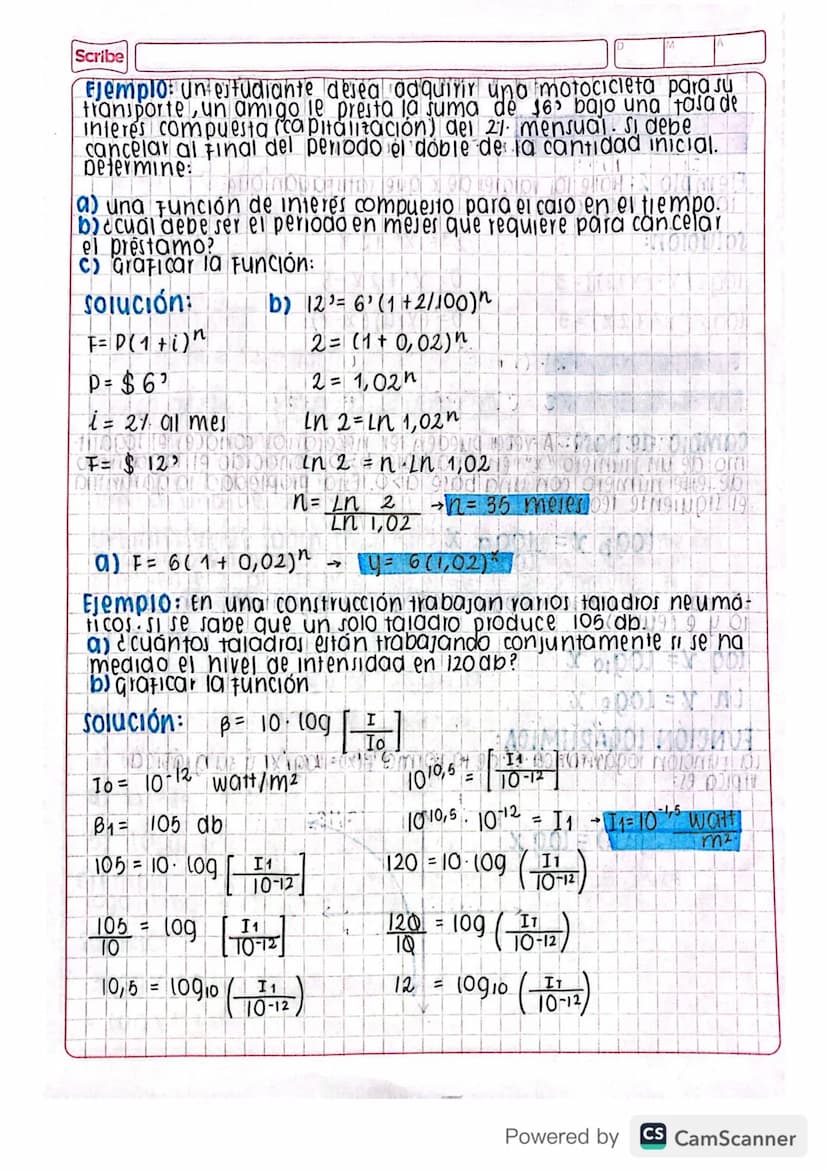 Scribe
D M A
Ejemplo: un estudiante desea adquirir una motocicleta para su
transporte, un amigo le presta la suma de $6' bajo una tasa de
interés compuesta (capitalización) del 2% mensual. si debe
cancelar al final del periodo el doble de la cantidad inicial.
Determine:
a) una función de interés compuesto para el caso en el tiempo.
b) ¿cual debe ser el periodo en meses que requiere para cancelar
el préstamo?
c) Graficar la función:
solución:
F= P(1+i)^n
P= $6'
i= 2% al mes
F= $ 12'
b) 12'= 6'(1+2/100)^n
2= (1+ 0,02)^n
2= 1,02^n
Ln 2=Ln 1,02^n
Ln 2 = n·Ln 1,02
n= Ln 2 / Ln 1,02 → n= 35 meses
a) F= 6(1+0,02)^n → y= 6(1,02)^x
Ejemplo: En una construcción trabajan varios taladros neumá-
ticos. si se sabe que un solo taladro produce 105 db.
a) ¿cuántos taladros están trabajando conjuntamente si se ha
medido el nivel de intensidad en 120 db?
b) graficar la función
solución: β= 10· log [I/Io]
Io= 10^-12 watt/m²
β1= 105 db
105= 10· log [I1/10^-12]
105/10 = log [I1/10^-12]
10,5 = log10 (I1/10^-12)
10^10,5 = [I1/10^-12]
10^10,5 · 10^-12 = I1 → I1=10^-1,5 watt/m²
120 =10·log (IT/10^-12)
120/10 = log (IT/10^-12)
12 = log10 (IT/10^-12)
Powered by CS CamScanner